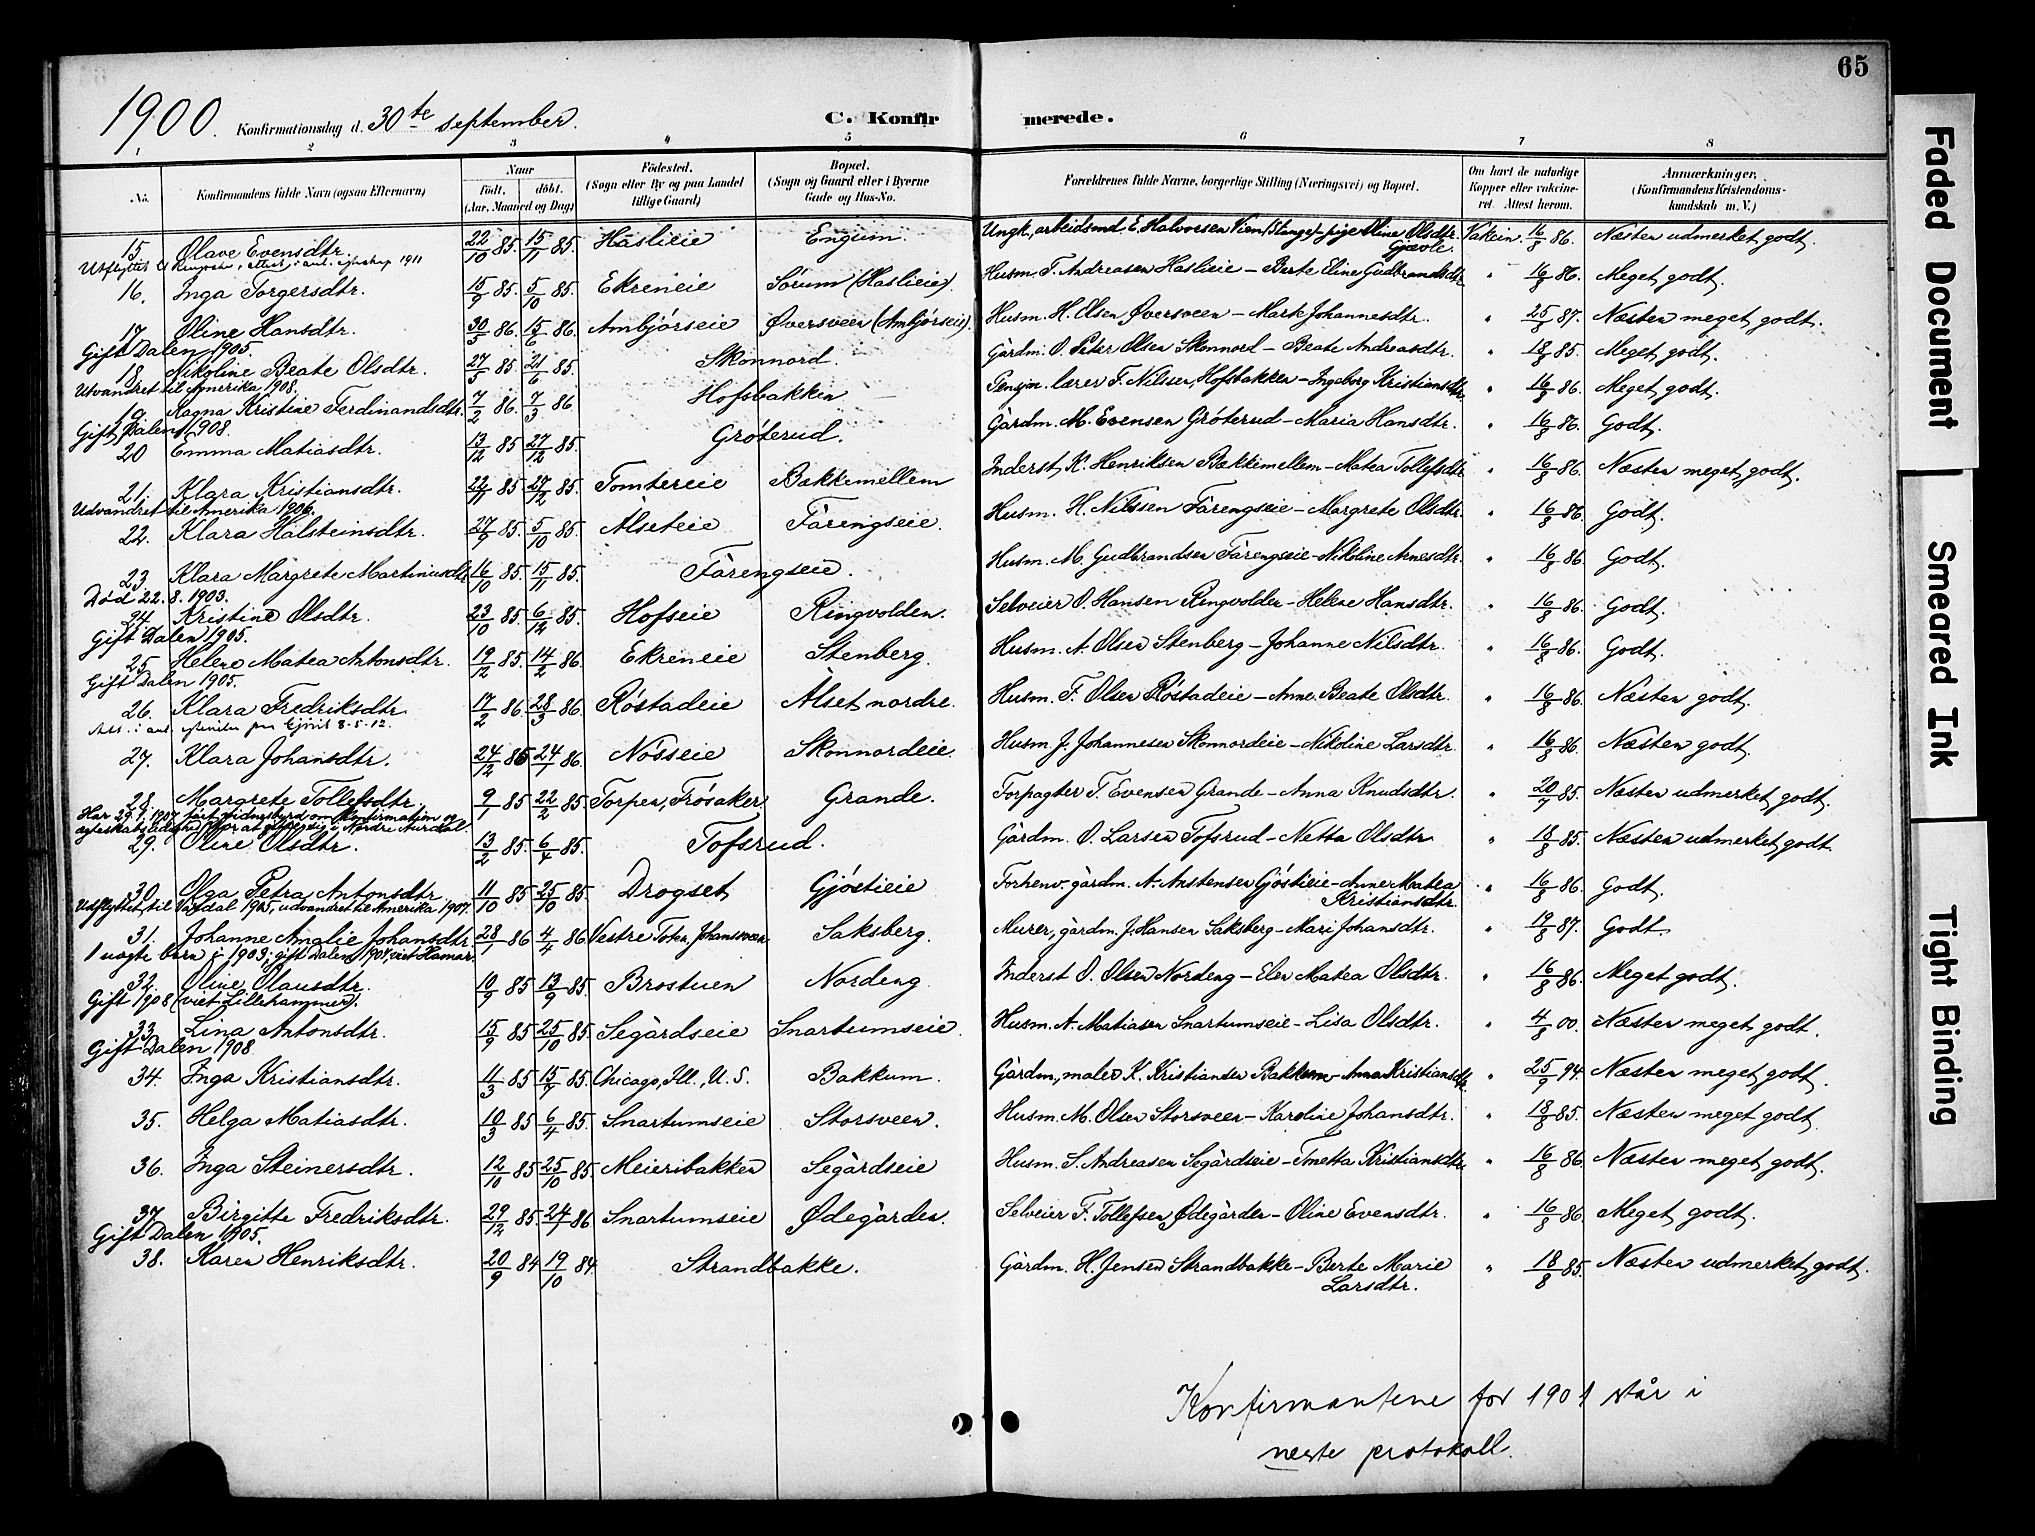 65
1900. Konfirmationsdag d. 30te september.
C. Konfirmerede.
1 2 3 4 5 6 7 8
No. Konfirmandens fulde Navn (ogsaa Efternavn) Naar Født. døbt. (Aar, Maaned og Dag) Fødested. (Sogn eller By og paa Landet tillige Gaard) Bopæl. (Sogn og Gaard eller i Byerne Gade og Hus-No. Forældrenes fulde Navne, borgerlige Stilling (Næringsvei) og Bopæl. Om havt de naturlige Kopper eller vakcineret. Attest herom. Anmærkninger. (Konfirmandens Kristendomskundskab m. V.)
15. Olave Evensdtr. 22/10 85. 15/11 85. Haslieie Engum. Ungk., arbeidsmd. E. Halvorsen Vien (Stange) - pige Oline Olsdtr. Gjøvle. Vakcin. 16/8 86. Næsten udmerket godt.
Utflyttet til Ringsaker, attest i anl. egteskap 1911
16. Inga Torgersdtr. 15/9 85. 5/10 85. Ekreneie Sørum (Haslieie). Husm. T. Andreasen Haslieie - Berte Eline Gudbrandsdtr. " 16/8 86. Meget godt.
17. Oline Hansdtr. 30/3 86. 15/6 86. Ambjørseie Øversveen (Ambjørseie). Husm. H. Olsen Øversveen - Marte Johannesdtr. " 25/8 87. Næsten meget godt.
Gift Dalen 1905.
18. Nikoline Beate Olsdtr. 27/3 85. 21/6 85. Skonnord Gårdm. O. Peter Olsen Skonnord - Beate Andreasdtr. " 18/8 85. Meget godt.
Utvandret til Amerika 1908.
19. Ragna Kristine Ferdinandsdtr. 7/2 86. 7/3 86. Hofsbakken Pensjon. lærer F. Nilssen, Hofsbakken - Ingeborg Kristiansdtr. " 16/8 86. Meget godt.
Gift Dalen 1908.
20 Emma Matiasdtr. 13/12 85 27/12 85. Grøterud. Gårdm. M. Evensen Grøterud - Maria Hansdtr. " 16/8 86. Godt.
21. Klara Kristiansdtr. 22/11 85 27/12 85. Tomtereie Bækkemellem Inderst K. Henriksen Bækkemellem - Matea Tollefsdtr. " 16/8 86. Næsten meget godt.
Udvandret til Amerika 1906.
22. Klara Halsteinsdtr. 27/7 85. 5/10 85. Ålseteie Fårengseie. Husm. H. Nilssen Fårengseie - Margrete Olsdtr. " 16/8 86. Godt.
23 Klara Margrete Martinusdtr. 16/10 85. 15/11 85. Fårengseie. Husm. M. Gudbrandsen Fårengseie - Nikoline Arnesdtr. " 16/8 86. Godt.
Død 22.8.1903.
24. Kristine Olsdtr. 23/10 85 6/12 85. Hofseie Ringvolden. Selveier O. Hansen Ringvolden - Helene Hansdtr. " 16/8 86. Godt.
Gift Dalen 1905.
25. Helene Matea Antonsdtr. 19/12 85. 14/2 86. Ekreneie Stenberg. Husm. A. Olsen Stenberg - Johanne Nilsdtr. " 16/8 86. Godt.
Gift Dalen 1905.
26. Klara Fredriksdtr. 17/2 86. 28/3 86. Røstadeie Ålset nordre. Husm. F. Olsen Røstadeie - Anne Beate Olsdtr. " 16/8 86. Næsten godt.
Att. i anl. på Gjøvik 8-5-12.
27. Klara Johansdtr. 24/12 85 24/1 86. Nøsseie Skonnordeie. Husm. J. Johannesen Skonnordeie - Nikoline Larsdtr. " 16/8 86. Næsten godt.
28. Margrete Tollefsdtr. 9/1 85 22/2 85. Torpen, Frøsaker Grande. Forpagter T. Evensen Grande - Anna Knudsdtr. " 20/7 85. Næsten udmerket godt.
Har 29.1.1907 fåt vidnesbyrd om konfirmation og egteskabsledighed for at gifte sig i Nordre Aurdal.
29. Oline Olsdtr. 13/2 85. 6/4 85. Tofsrud. Gårdm. O. Larsen Tofsrud - Netta Olsdtr. " 18/8 85. Næsten udmerket godt.
30. Olga Petra Antonsdtr. 11/10 85 25/10 85. Drogset Gjøstieie Forhenv. gårdm. A. Anstensen Gjøstieie - Anne Matea Kristiansdtr. " 16/8 86. Godt.
Udflyttet til Vardal 1905, udvandret til Amerika 1907.
31. Johanne Amalie Johansdtr. 28/1 86 4/4 86. Vestre Toten, Johansveen Saksberg. Murer, gårdm. J. Hansen Saksberg - Mari Johansdtr. " 19/8 87. Godt.
1 uægte barn i 1903; gift Dalen 1904, viet Hamar.
32. Oline Olausdtr. 10/9 85 13/9 85. Brostuen Nordeng. Inderst O. Olsen Nordeng - Elen Matea Olsdtr. " 16/8 86. Meget godt.
Gift 1908 (viet Lillehammer).
33. Lina Antonsdtr. 15/9 85 25/10 85. Segårdseie Snartumseie. Husm. A. Matiasen Snartumseie - Lisa Olsdtr. " 4/8 00. Næsten meget godt.
Gift Dalen 1908.
34. Inga Kristiansdtr. 11/3 85 15/7 85. Chicago, Ill., U.S. Bakkum. Gårdm., maler K. Kristiansen Bakkum - Anna Kristiansdtr. " 25/9 94. Næsten meget godt.
35. Helga Matiasdtr. 10/3 85 6/4 85. Snartumseie Storsveen. Husm. M. Olsen Storsveen - Karoline Johansdtr. " 18/8 85. Næsten meget godt.
36. Inga Steinersdtr. 12/10 85 25/10 85. Meieribakken Segårdseie Husm. S. Andreasen Segårdseie - Tonetta Kristiansdtr. " 16/8 86. Næsten meget godt.
37. Birgitte Fredriksdtr. 29/12 85. 24/1 86 Snartumseie Ødegården. Selveier F. Tollefsen Ødegården - Oline Evensdtr. " 16/8 86. Meget godt.
Gift Dalen 1905.
38. Karen Henriksdtr. 20/9 84 19/10 84. Strandbakke. Gårdm. H. Jensen Strandbakke - Berte Marie Larsdtr. " 18/8 85. Næsten udmerket godt.
Konfirmantene for 1901 står i
neste protokoll.
Faded Document
Smeared Ink
Tight Binding